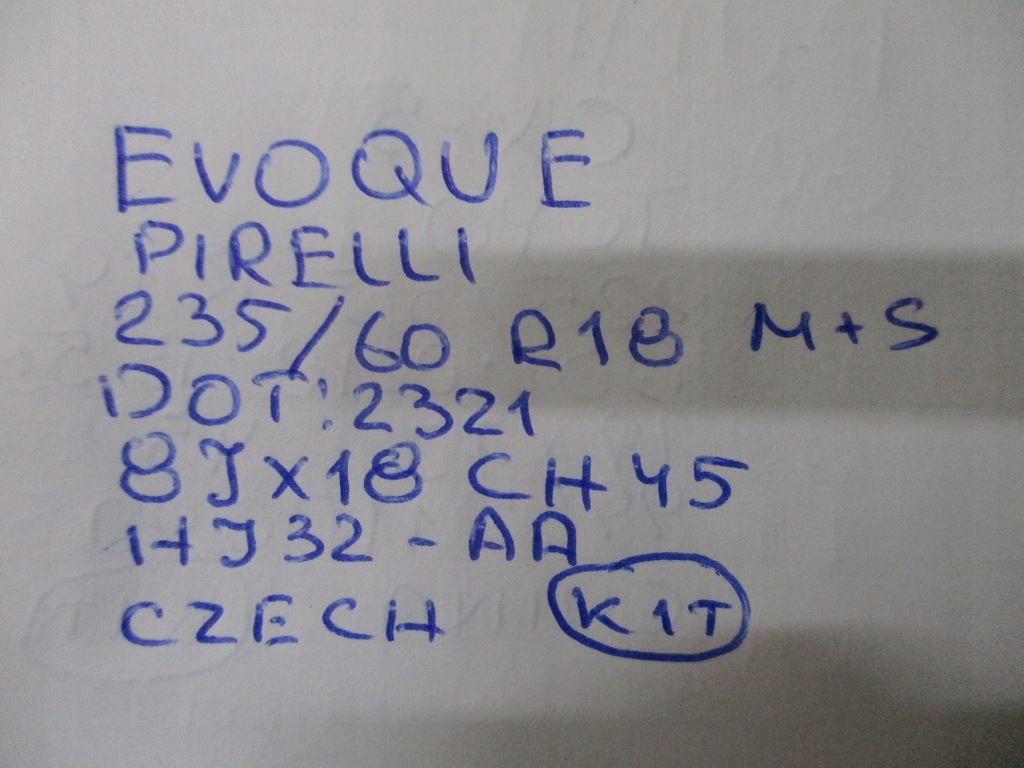 EVOQUE
PIRELLI
235/60 R18 M+S
DOT:2321
8JX18 CH45
HJ32-AA
CZECH KIT